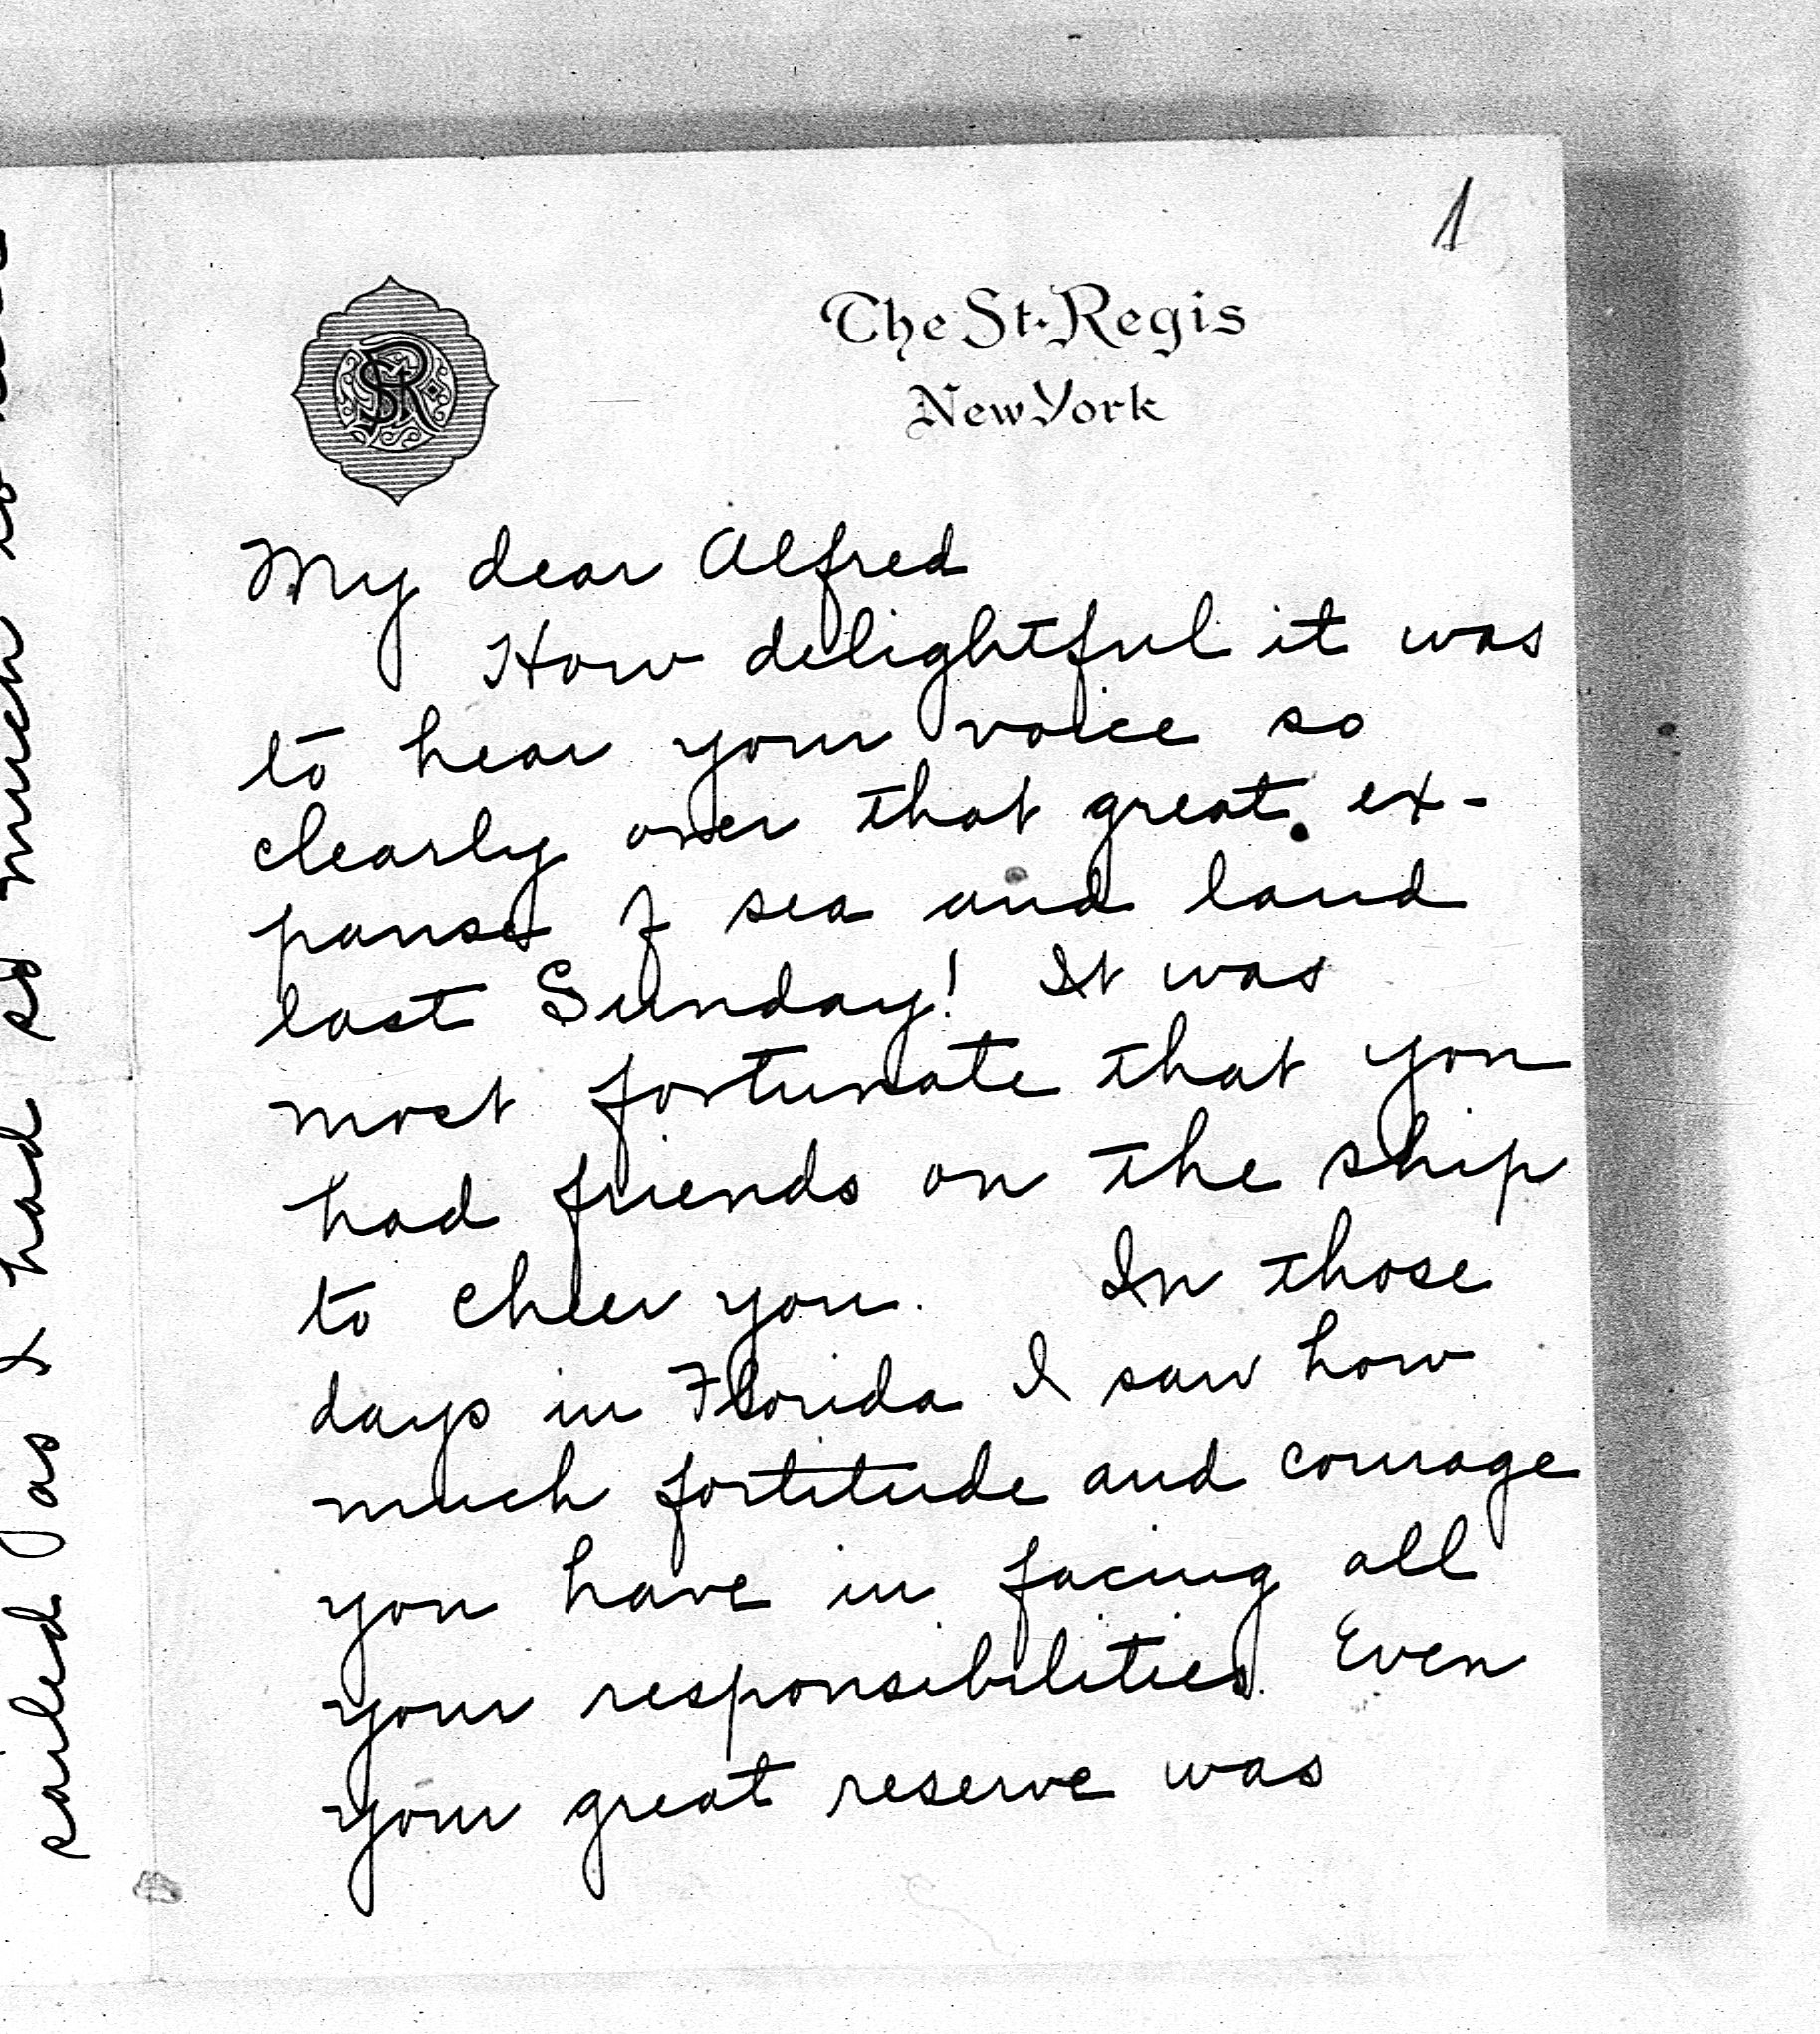 1
The St. Regis
New York
SR
My dear Alfred
How delightful it was
to hear your voice so
clearly over that great ex-
panse of sea and land
last Sunday! It was
most fortunate that you
had friends on the ship
to cheer you. In those
days in Florida I saw how
much fortitude and courage
you have in facing all
your responsibilities. Even
your great reserve was
sailed as I had so much